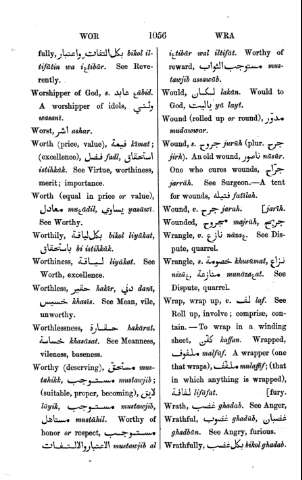 WOR 1056 WRA
fully, بكل التفات واعتبار bikol il-
tifātin wa iʿtibār. See Reve-
rently.
Worshipper of God, s. عابد ʿābid.
A worshipper of idols, وثني
wasanī.
Worst, اشر ashar.
Worth (price, value), قيمة kīmat;
(excellence), فضل faḍl, استحقاق
istihkāk. See Virtue, worthiness,
merit; importance.
Worth (equal in price or value),
معادل muʿādil, يساوي yasāwī.
See Worthy.
Worthily, بكل لياقة bikol liyākat,
باستحقاق bi istihkāk.
Worthiness, لياقة liyākat. See
Worth, excellence.
Worthless, حقير hakīr, دني danī,
خسيس khasīs. See Mean, vile,
unworthy.
Worthlessness, حقارة hakārat,
خساسة khasāsat. See Meanness,
vileness, baseness.
Worthy (deserving), مستحق mus-
tahikk, مستوجب mustawjib;
(suitable, proper, becoming), لايق
lāyik, مستوجب mustawjib,
مستاهل mustāhil. Worthy of
honor or respect, مستوجب
الاعتبار والالتفات mustawjib al
iʿtibār wal iltifāt. Worthy of
reward, مستوجب الثواب mus-
tawjib assawāb.
Would, لكان lakān. Would to
God, يا ليت yā layt.
Wound (rolled up or round), مدور
mudawwar.
Wound, s. جروح jarūh (plur. جرح
jirh). An old wound, ناصور nāsūr.
One who cures wounds, جراح
jarrāh. See Surgeon.—A tent
for wounds, فتيلة
Wound, v. جرح jarah. [jarīh.
Wounded, مجروح majrūh, جريح
Wrangle, v. نازع nāzaʿ. See Dis-
pute, quarrel.
Wrangle, s. خصومة khusūmat, نزاع
nizāʿ, منازعة munāzaʿat. See
Dispute, quarrel.
Wrap, wrap up, v. لف laf. See
Roll up, involve; comprise, con-
tain.—To wrap in a winding
sheet, كفن kaffan. Wrapped,
ملفوف malfūf. A wrapper (one
that wraps), ملفف mulaffif; (that
in which anything is wrapped),
لفافة lifāfat. [fury.
Wrath, غضب ghadab. See Anger,
Wrathful, غضوب ghadūb, غضبان
ghadbān. See Angry, furious.
Wrathfully, بكل غضب bikol ghadab.